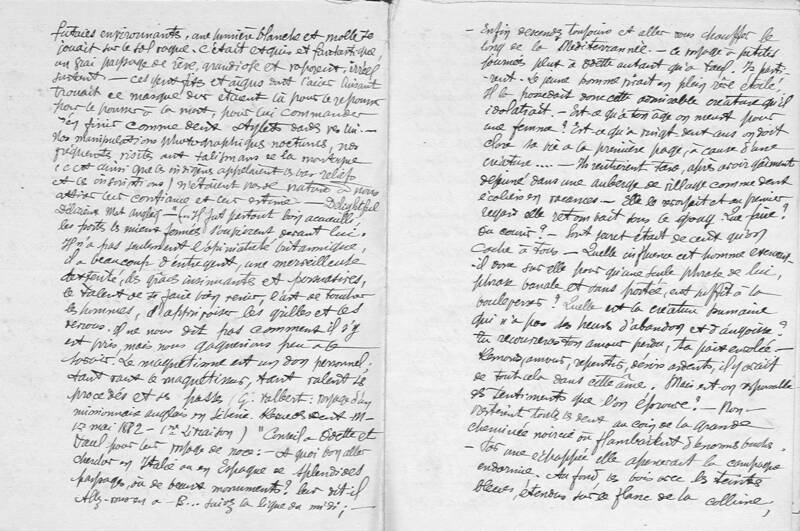 futaies environnantes, une lumière blanche et molle se
jouait sur le sol vague. C'était exquis et
un vrai paysage de rêve, grandiose et vaporeux, irréel
— ces
ce masque dur étaient là pour le
pour le pousser à la mort, pour lui commander
d'en finir comme dent stylets dardés vers lui. —
Nos manipulations photographiques nocturnes, nos
fréquentes visites aux talismans de la montagne
(c'est ainsi que les indigènes appelaient les bas-reliefs
et les inscriptions) n'étaient pas de nature à nous
attirer leur confiance et leur estime. — Delightful
délicieux mot anglais — (... Il fut partout bien accueilli,
les portes les mieux fermées s'ouvrirent devant lui.
Il n'a pas seulement l'opiniâtreté britannique,
il a beaucoup d'entregent, une merveilleuse
dextérité, des grâces insinuantes et persuasives,
le talent de se faire bien venir, l'art de toucher
les hommes, d'apprivoiser les grilles et les
verrous. Il ne nous dit pas comment il s'y
est pris, mais nous gagnerions peu à le
savoir. Le magnétisme est un don personnel;
tant vaut le magnétiseur, tant valent ses
procédés et ses passes (G. Valbert: voyage d'un
missionnaire anglais en Sibérie. Revue des deux M—
15 mai 1882 — 1re Livraison) " Conseil à Odette et
Paul pour leur voyage de noce: — A quoi bon aller
chercher en Italie ou en Espagne de splendides
paysages, ou de beaux monuments? leur dit-il
Allez-vous-en à B... suivez la ligne du midi; —
— Enfin descendez toujours et allez vous chauffer le
long de la Méditerrannée. — Ce voyage à petites
journées plut à Odette autant qu'à Paul. Ils parti-
rent. Le jeune homme vivait en plein rêve étoilé.
Il la possédait donc cette admirable créature qu'il
idolâtrait. — Est-ce qu'à ton age on meurt pour
une femme? Est-ce qu'à vingt deux ans on doit
clore sa vie à la première page, à cause d'une
créature.... — Ils rentrèrent tard, après avoir gaiement
déjeuné dans une auberge de village comme deux
écoliers en vacances. — Elle le revoyait et au premier
regard elle retombait sous le joug. Que faire?
Où courir? — Son secret était de ceux qu'on
cache à tous — Quelle influence cet homme exerçait
-il donc sur elle pour qu'une seule phrase de lui,
phrase banale et sans portée, eut suffit à la
bouleverser? Quelle est la créature humaine
qui n'a pas ses heures d'abandon et d'angoisse?
Tu recouvreras ton amour perdu, ta paix envolée —
Remords, amours, repentirs, désirs ardents, il y avait
de tout cela dans cette âme. Mais est-on responsable
des sentiments que l'on éprouve? — Non —
toutes les deux au coin de la grande
cheminée noircie où flambaient d'énormes bûches.
— Par une échappée elle apercevait la campagne
endormie. Au fond les bois avec les teintes
bleues, étendus sur le flanc de la colline,